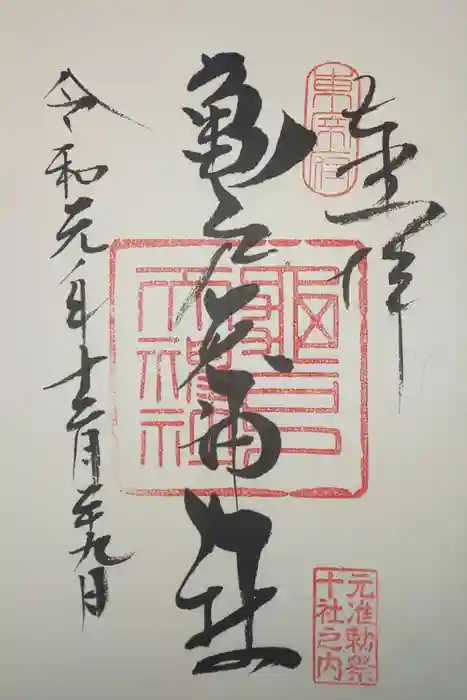 奉拝
東宰府
亀戸天神社
龜戸
天神社
令和元年十二月廿九日
元准勅祭
十社之内